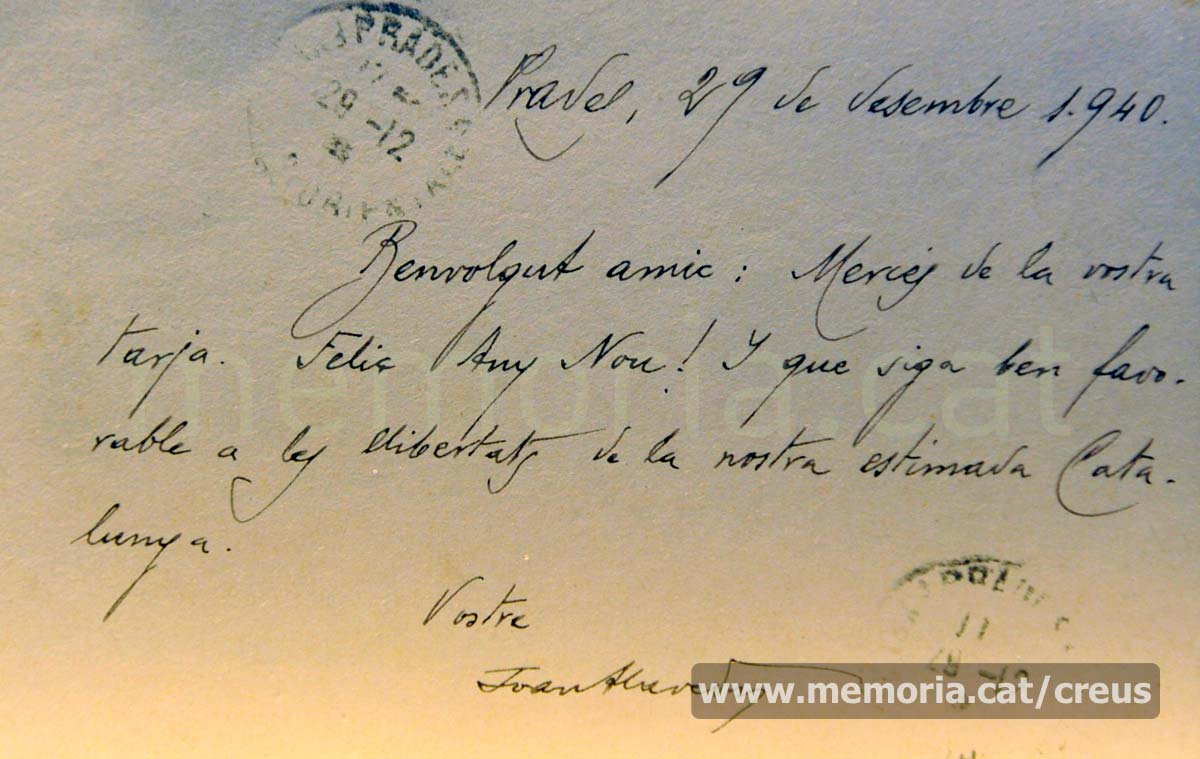 PRADES
17
29-12
ORIENTALES
Prades, 29 de desembre 1.940.
Benvolgut amic: Mercés de la vostra
tarja. Felic Any Nou! Y que siga ben favo-
rable a les llibertats de la nostra estimada Cata-
lunya.
Vostre
Joan Alavedra
memoria.cat
www.memoria.cat/creus